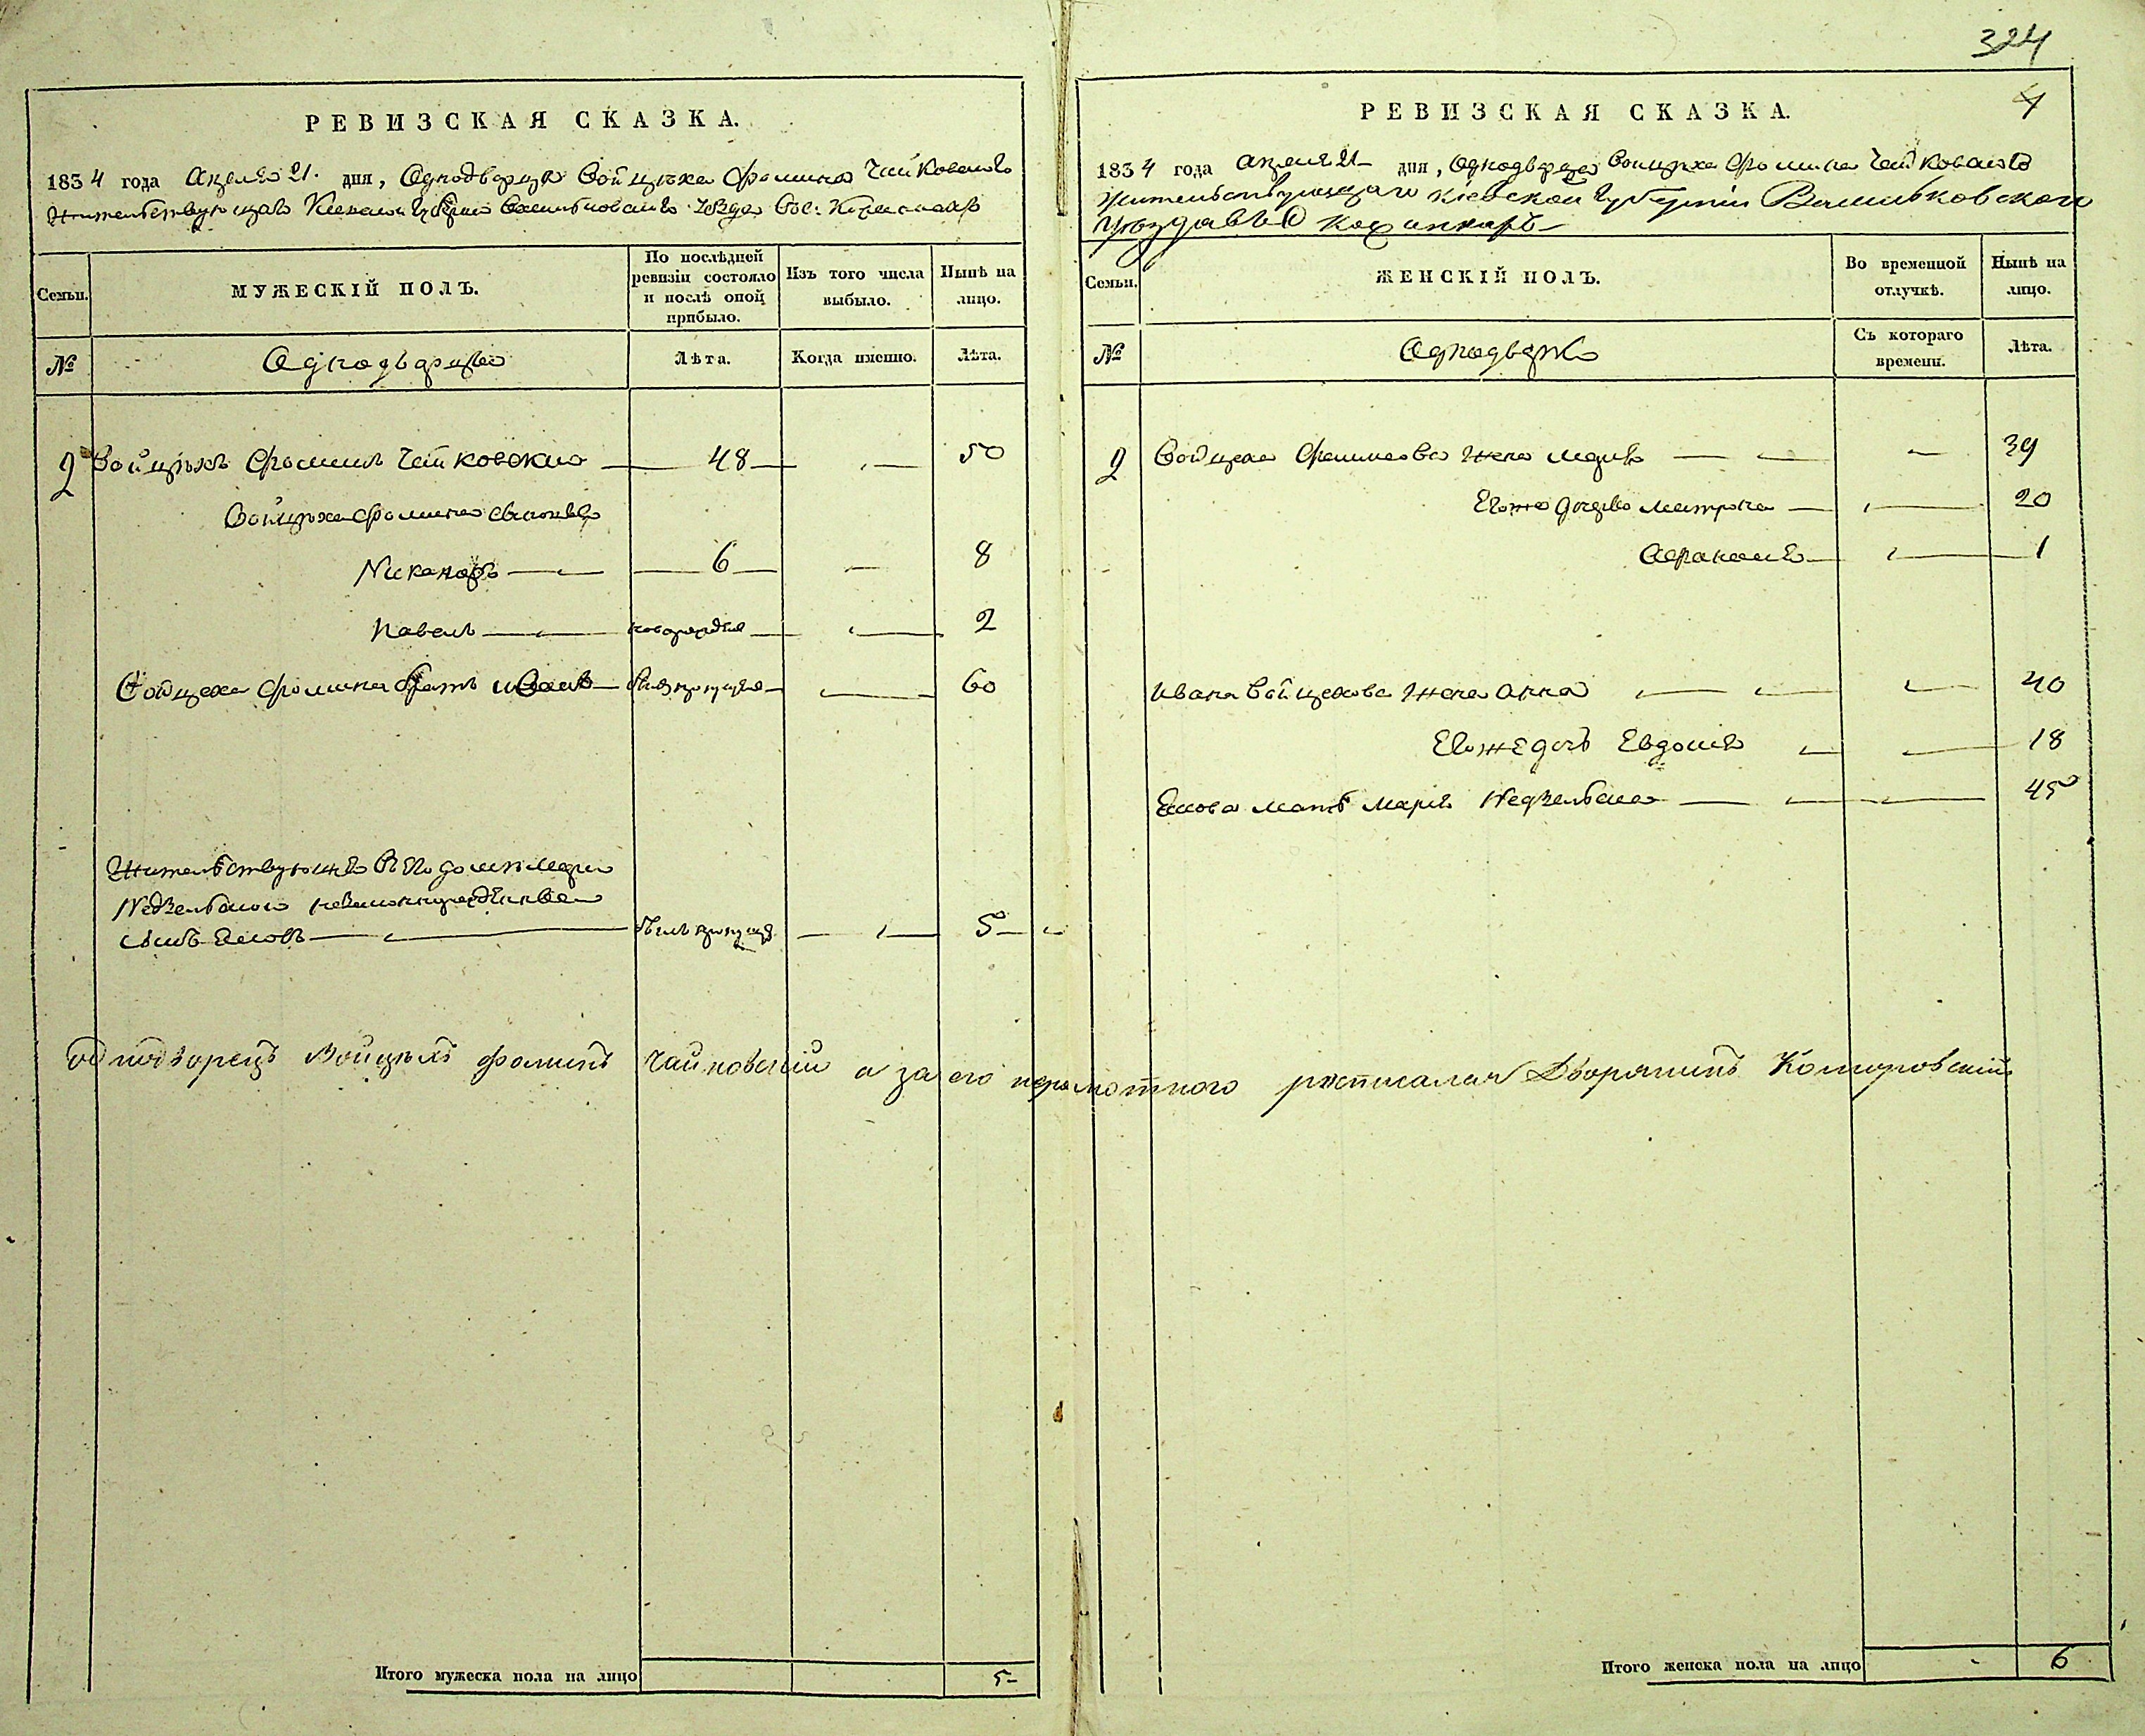 324
РЕВИЗСКАЯ СКАЗКА.
1834 года Апреля 21. дня, Однодворца Войцѣха Фомина Чайковскаго
Жительствующаго Киевской Губерніи Васильковскаго уѣзда
Семьи.
МУЖЕСКІЙ ПОЛЪ.
По послѣдней ревизіи состояло и послѣ оной прибыло.
Изъ того числа выбыло.
Нынѣ на лицо.
№
Однодворцы
Лѣта.
Когда именно.
Лѣта.
2 Войцѣхъ Фоминъ Чайковский 48 50
Войцѣха Фомина сыновья
Никаноръ 6 8
Павелъ новорожден 2
Войцеха Фомина братъ Иванъ былъ пропущен 60
Жительствующей в его доме Марии
Недзельской незаконнорожденной
сынъ Яковъ былъ пропущен 5
однодворецъ Войцѣхъ Фоминъ Чайковский а за его неграмотного росписался Дворянинъ Комировский
Итого мужеска пола на лицо 5
4
РЕВИЗСКАЯ СКАЗКА.
1834 года апреля 21 дня, Однодворца Войцѣха Фомина Чайковскаго
жительствующаго Кіевской Губерніи Васильковского
уѣзда въ С
Семьи.
ЖЕНСКІЙ ПОЛЪ.
Во временной отлучкѣ.
Нынѣ на лицо.
№
Однодворки
Съ котораго времени.
Лѣта.
2 Войцеха Фоминова жена Мария 39
Его же дочери Матрона 20
1
Ивана Войцехова жена Анна 40
Его же дочь Евдокия 18
Якова мать Мария Недзельская 45
Итого женска пола на лицо 6